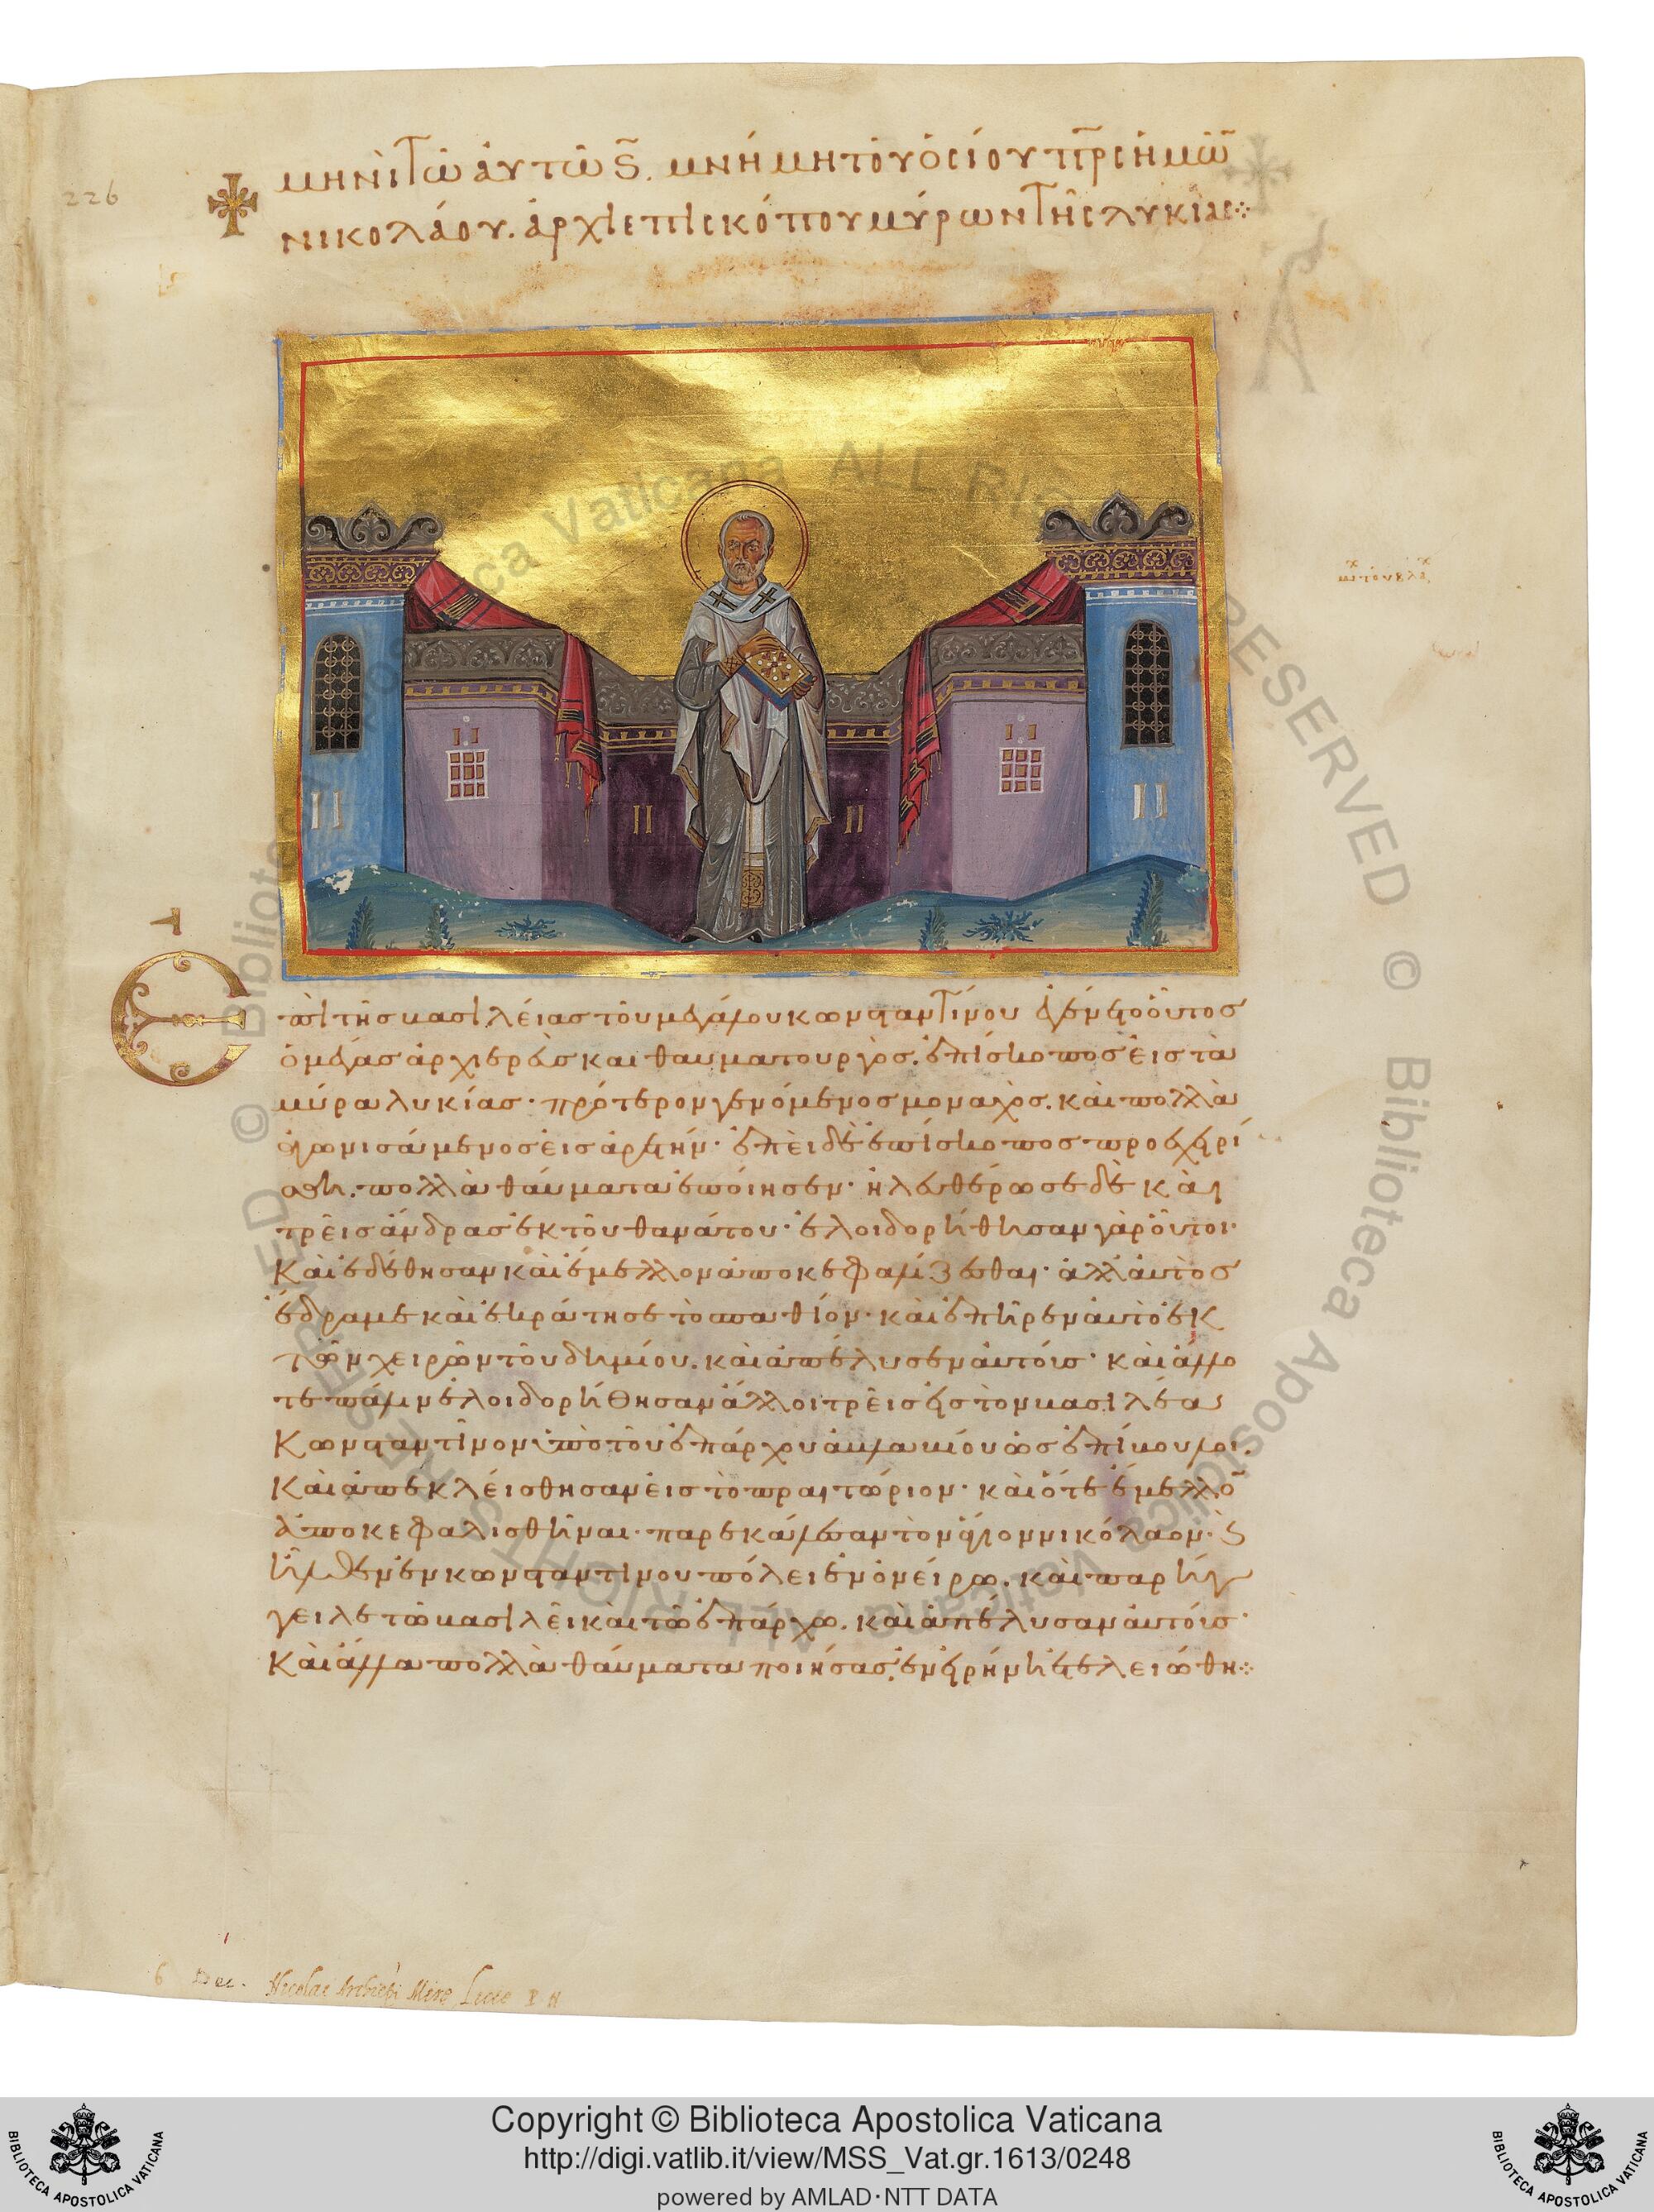 226
μηνὶ τῶ αὐτῶ ς̄. μνήμη τοῦ ὁσίου π̅ρ̅ς ἡμῶ̅
νικολάου. ἀρχιεπισκόπου μύρων τῆς λυκίας⁘
Ἐ
πὶ τῆς βασιλείας τοῦ μεγάλου κωνσταντίνου ἐγένετο οὗτος
ὁ μέγας ἀρχιερεὺς καὶ θαυματουργὸς. ἐπίσκοπος εἰς τὰ
μύρα λυκίας· πρότερον γενόμενος μοναχὸς. καὶ πολλὰ
ἀγωνισάμενος εἰς ἀρετήν· ἐπεὶ δὲ ἐπίσκοπος προεχειρί
σθη. πολλὰ θαύματα ἐποίησεν· ἠλευθέρωσε δὲ καὶ
τρεῖς ἄνδρας ἐκ τοῦ θανάτου· ἐλοιδορήθησαν γὰρ οὗτοι·
Καὶ ἐδέθησαν καὶ ἔμελλον ἀποκεφαλίζεσθαι· ἀλλ' αὐτὸς
ἔδραμε καὶ ἐκράτησε τὸ σπαθίον· καὶ ἐπῆρεν αὐτὸ ἐκ
τῶν χειρῶν τοῦ δημίου. καὶ ἀπέλυσεν αὐτούς· καὶ ἄλλο
τε πάλιν ἐλοιδορήθησαν ἄλλοι τρεῖς εἰς τὸν βασιλέα
Κωνσταντῖνον ὑπὸ τοῦ ἐπάρχου ἀβλαβίου ὡς ἐπίβουλοι.
Καὶ ἀπεκλείσθησαν εἰς τὸ πραιτώριον· καὶ ὅτε ἔμελλο̅
ἀποκεφαλισθῆναι· παρεκάλεσαν τὸν ἅγιον νικόλαον. καὶ
ἦλθεν ἐν κωνσταντίνου πόλει ἐν ὀνείρω. καὶ παρήγ
γειλε τῶ βασιλεῖ καὶ τῶ ἐπάρχω. καὶ ἀπέλυσαν αὐτούς·
Καὶ ἄλλα πολλὰ θαύματα ποιήσας. ἐν εἰρήνη ἐτελειώθη⁘
6 Dec. Nicolai Archiepi Mire Licie
© Biblioteca Apostolica Vaticana ALL RIGHTS RESERVED © Biblioteca Apostolica Vaticana ALL RIGHTS RESERVED
Copyright © Biblioteca Apostolica Vaticana
http://digi.vatlib.it/view/MSS_Vat.gr.1613/0248
powered by AMLAD·NTT DATA
BIBLIOTECA APOSTOLICA VATICANA
BIBLIOTECA APOSTOLICA VATICANA